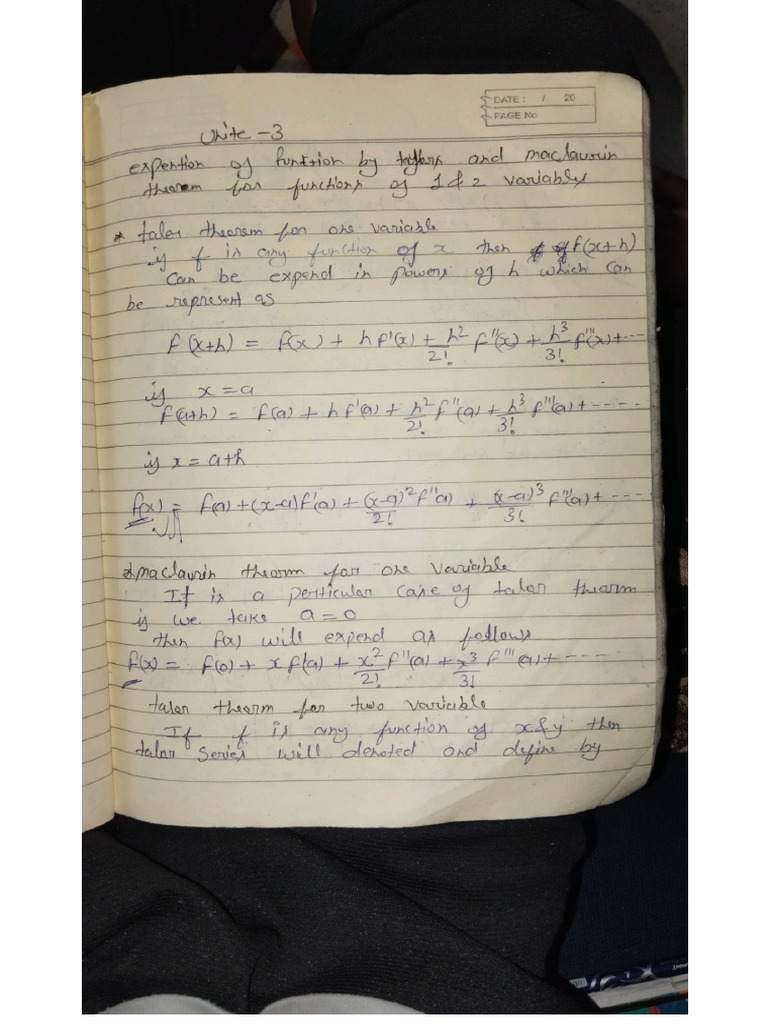 DATE: / 20
PAGE No
Unite -3
expention of funtion by taylors and maclaurin
theorem for functions of 1 & 2 variables
* talor theorem for one variable
if f is any function of x then f(x+h)
Can be expend in powers of h which can
be represent as
f(x+h) = f(x) + h f'(x) + h²/2! f''(x) + h³/3! f'''(x) + ---
if x = a
f(a+h) = f(a) + h f'(a) + h²/2! f''(a) + h³/3! f'''(a) + -----
if x = a+h
f(x) = f(a) + (x-a) f'(a) + (x-a)²/2! f''(a) + (x-a)³/3! f'''(a) + ----
* maclaurin theorm for one variable
It is a perticular case of talor theorm
if we take a = 0
then f(x) will expend as follows
f(x) = f(0) + x f'(a) + x²/2! f''(a) + x³/3! f'''(a) + -----
talor theorm for two variable
If f is any function of x & y then
talor series will denoted and define by